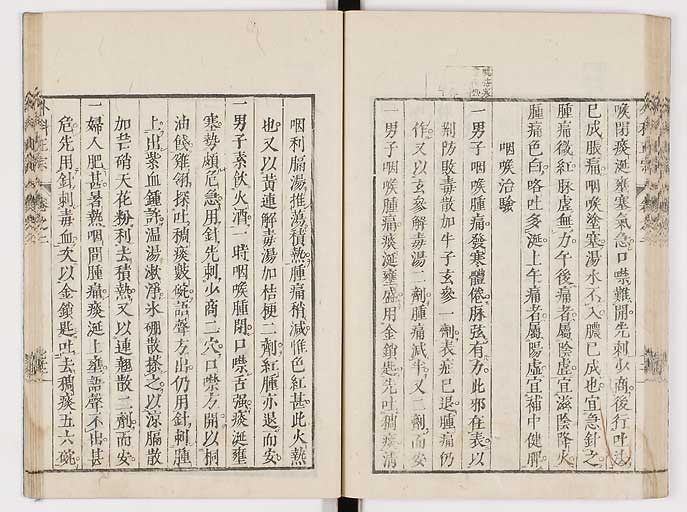 喉閉痰涎壅塞氣急口噤難開先刺少商後行吐法
已成脹痛咽喉塗塞湯水不入膿已成也宜急針之
腫痛微紅脉虛無力午後痛者屬陰虛宜滋陰降火
腫痛色白咯吐多涎上午痛者屬陽虛宜補中健脾
咽喉治驗
一男子咽喉腫痛發寒體倦脉弦有力此邪在表以
荊防敗毒散加牛子玄參一劑表症已退腫痛仍
作又以玄參解毒湯二劑腫痛減半又二劑而安
一男子咽喉腫痛痰涎壅盛用金鎖匙先吐稠痰清
咽利膈湯推蕩積熱腫痛稍減惟色紅甚此火熱
也又以黃連解毒湯加桔梗二劑紅腫亦退而安
一男子素飲火酒一時咽喉腫閉口噤舌强痰涎壅
塞勢頗危急用針先刺少商二穴口噤方開以桐
油餞雞翎探吐稠痰數碗語聲方出仍用針刺腫
上出紫血鍾許溫湯漱淨氷硼散搽之以涼膈散
加芒硝天花粉利去積熱又以連翹散二劑而安
一婦人肥甚暑熱咽間腫痛痰涎上壅語聲不出甚
危先用針刺毒血次以金鎖匙吐去稠痰五六碗